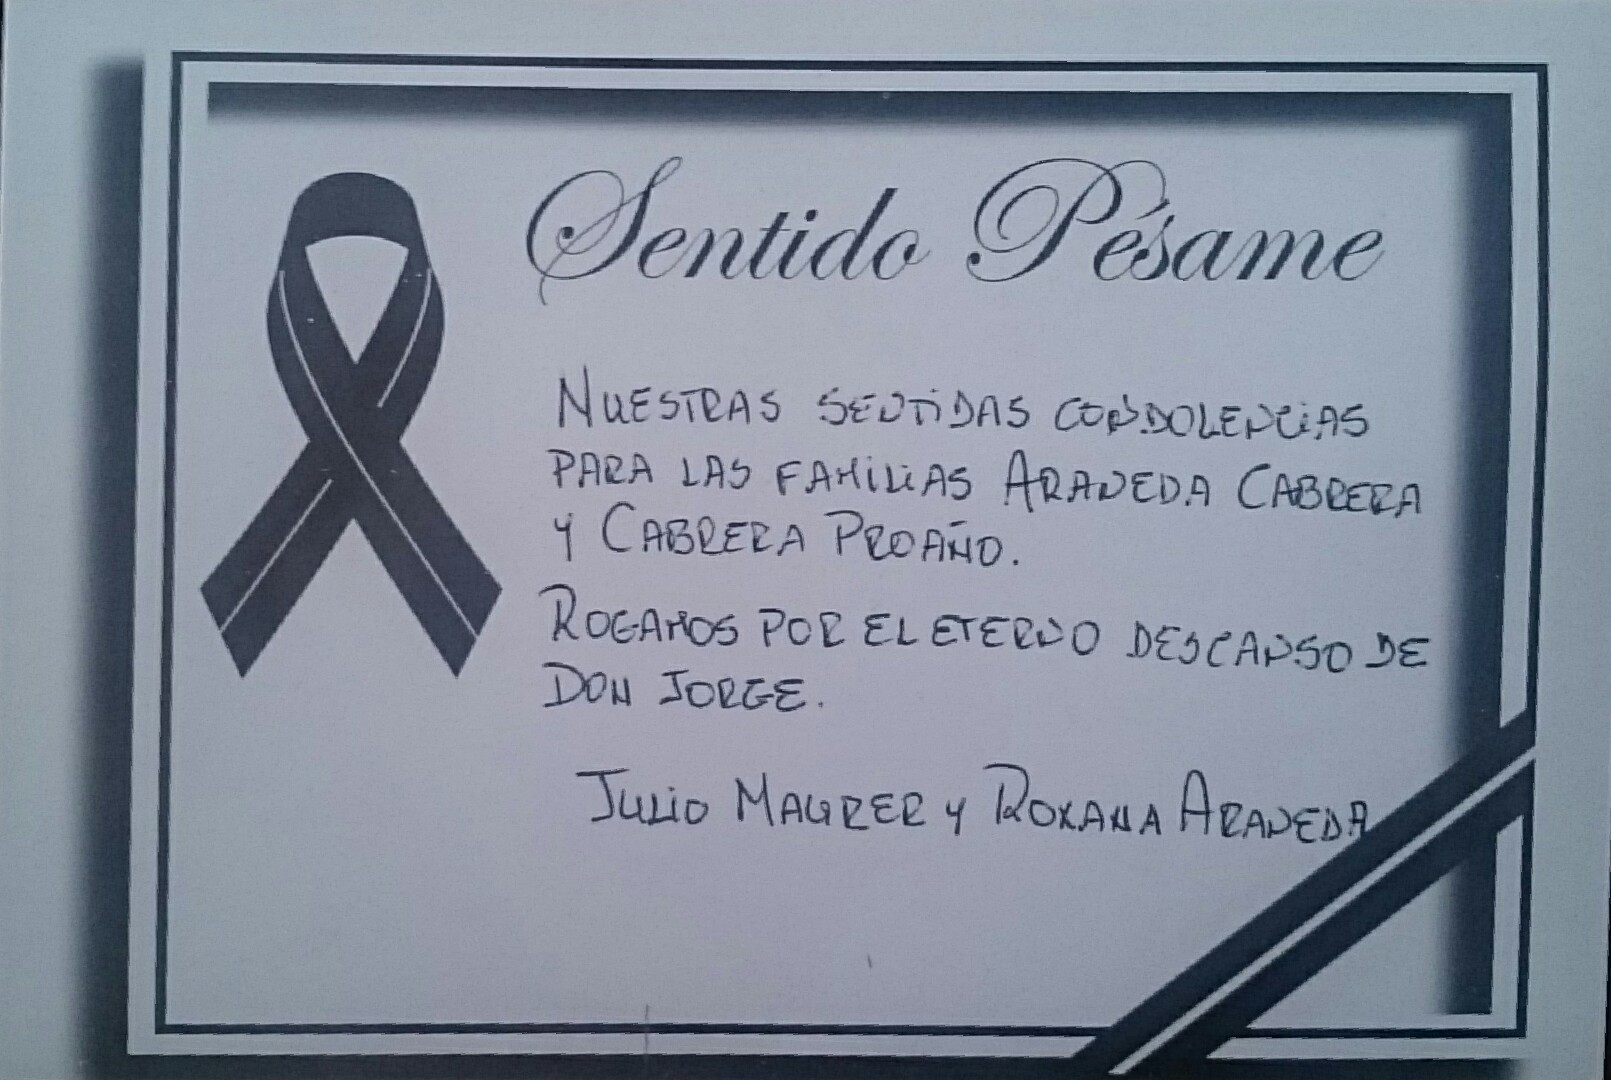 Sentido Pésame
NUESTRAS SENTIDAS CONDOLENCIAS
PARA LAS FAMILIAS ARANEDA CABRERA
Y CABRERA PROAÑO.
ROGAMOS POR EL ETERNO DESCANSO DE
DON JORGE.
JULIO MAURER Y ROXANA ARANEDA